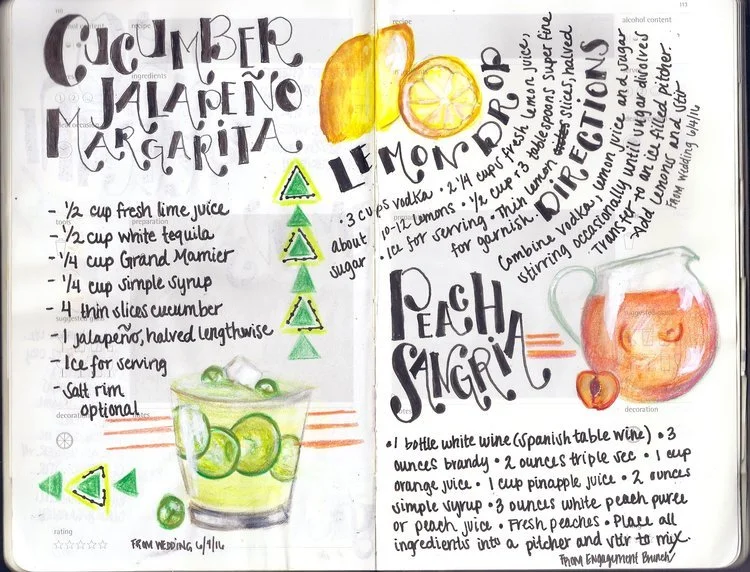 CUCUMBER
JALAPEÑO
MARGARITA
ingredients
- 1/2 cup fresh lime juice
- 1/2 cup white tequila
preparation
- 1/4 cup Grand Marnier
- 1/4 cup simple syrup
- 4 thin slices cucumber
- 1 jalapeño, halved lengthwise
- Ice for serving
- Salt rim
optional
decoration
notes
rating
FROM WEDDING 6/4/16
recipe
alcohol content
113
LEMON DROP
• 3 cups vodka • 2 1/4 cups fresh lemon juice,
about 10-12 lemons • 1/2 cup + 3 tablespoons super fine
sugar • Ice for serving • Thin lemon slices, halved
for garnish.
DIRECTIONS
Combine vodka, lemon juice and sugar
stirring occasionally until sugar disolves
Transfer to an ice filled pitcher.
Add lemons and stir
FROM WEDDING 6/4/16
PEACH
SANGRIA
decoration
• 1 bottle white wine (Spanish table wine) • 3
ounces brandy • 2 ounces triple sec • 1 cup
orange juice • 1 cup pinapple juice • 2 ounces
simple syrup • 3 ounces white peach puree
or peach juice • Fresh peaches • Place all
ingredients into a pitcher and stir to mix.
From Engagement Brunch